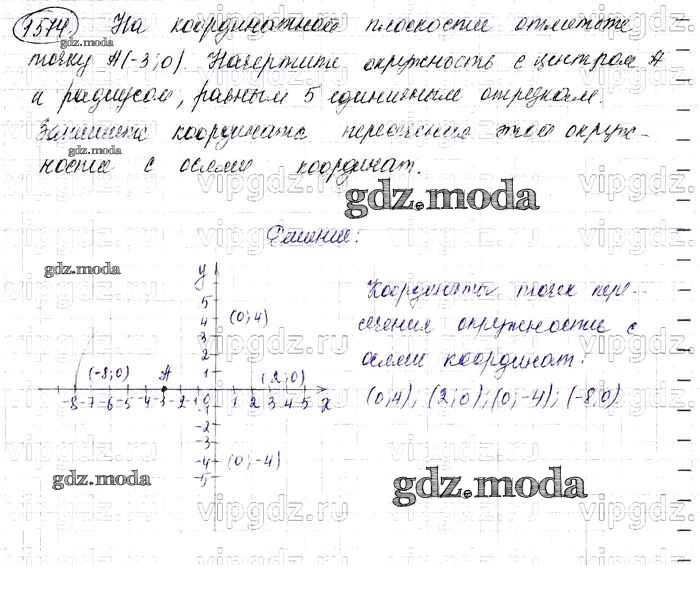 1574. На координатной плоскости отметьте
gdz.moda
точку А(-3;0). Начертите окружность с центром А
и радиусом, равным 5 единичным отрезкам.
Запишите координаты пересечения этой окруж-
gdz.moda
ности с осями координат.
vipgdz.ru vipgdz.ru vipgdz.ru vipgdz.ru
gdz.moda
Решение:
gdz.moda
y
5
4 (0;4)
3
2
1
(-8;0) А (2;0)
-8 -7 -6 -5 -4 -3 -2 -1 0 1 2 3 4 5 x
-1
-2
-3
-4 (0;-4)
-5
Координаты точек пере-
сечения окружности с
осями координат:
(0;4); (2;0); (0;-4); (-8;0)
gdz.moda
gdz.moda
vipgdz.ru vipgdz.ru vipgdz.ru vipgdz.ru